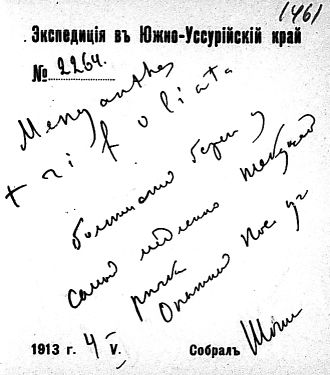 1461
Экспедиція въ Южно-Уссурійскій край
№ 2264.
Menyanthes
trifoliata
болотистый берег у
самой медленно текущей
речка
Опытное Поле
1913 г. 4 V. Собралъ